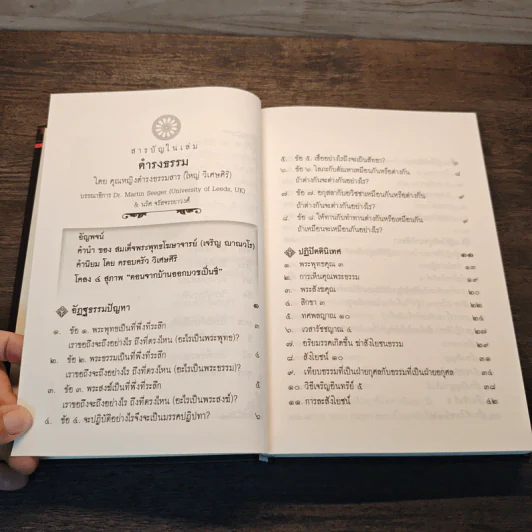 สารบัญในเล่ม
ดำรงธรรม
โดย คุณหญิงดำรงธรรมสาร (ใหญ่ วิเศษศิริ)
บรรณาธิการ Dr. Martin Seeger (University of Leeds, UK)
& นริศ จรัสจรรยาวงศ์
อัญพจน์
คำนำ ของ สมเด็จพระพุทธโฆษาจารย์ (เจริญ ญาณวโร)
คำนิยม โดย ครอบครัว วิเศษศิริ
โคลง ๔ สุภาพ "ตอนจากบ้านออกบวชเป็นชี"
อัฏฐธรรมปัญหา ๑
๑. ข้อ ๑. พระพุทธเป็นที่พึ่งที่ระลึก ๓
เราขอถึงจะถึงอย่างไร ถึงที่ตรงไหน (อะไรเป็นพระพุทธ)?
๒. ข้อ ๒. พระธรรมเป็นที่พึ่งที่ระลึก ๔
เราขอถึงจะถึงอย่างไร ถึงที่ตรงไหน (อะไรเป็นพระธรรม)?
๓. ข้อ ๓. พระสงฆ์เป็นที่พึ่งที่ระลึก ๕
เราขอถึงจะถึงอย่างไร ถึงที่ตรงไหน (อะไรเป็นพระสงฆ์)?
๔. ข้อ ๔. จะปฏิบัติอย่างไรจึงจะเป็นมรรคปฏิปทา? ๖
๕. ข้อ ๕. เชื่ออย่างไรถึงจะเป็นสัทธา?
๖. ข้อ ๖. โลภะกับตัณหาเหมือนกันหรือต่างกัน ๘
ถ้าต่างกันจะต่างกันอย่างไร?
๗. ข้อ ๗. อกุสลากับอวิชชาเหมือนกันหรือต่างกัน ๙
ถ้าต่างกันจะต่างกันอย่างไร?
๘. ข้อ ๘. ให้ทานกับทำทานต่างกันหรือเหมือนกัน
ถ้าเหมือนจะเหมือนกันอย่างไร?
ปฏิปัตตินิเทศ ๑๑
๑. พระพุทธคุณ ๓
๒. การเห็นคุณพระธรรม ๑๙
๓. พระสังฆคุณ ๒๐
๔. สิกขา ๓ ๒๒
๕. ทศพลญาณ ๑๐
๖. เวสารัชชญาณ ๔ ๒๗
๗. อริยมรรคเกิดขึ้น ฆ่าสังโยชน์ธรรม
๘. สังโยชน์ ๑๐ ๓๑
๙. เทียบธรรมที่เป็นฝ่ายกุศลกับธรรมที่เป็นฝ่ายอกุศล
๑๐. วิธีเจริญอินทรีย์ ๕ ๓๘
๑๑. การละสังโยชน์ ๔๒